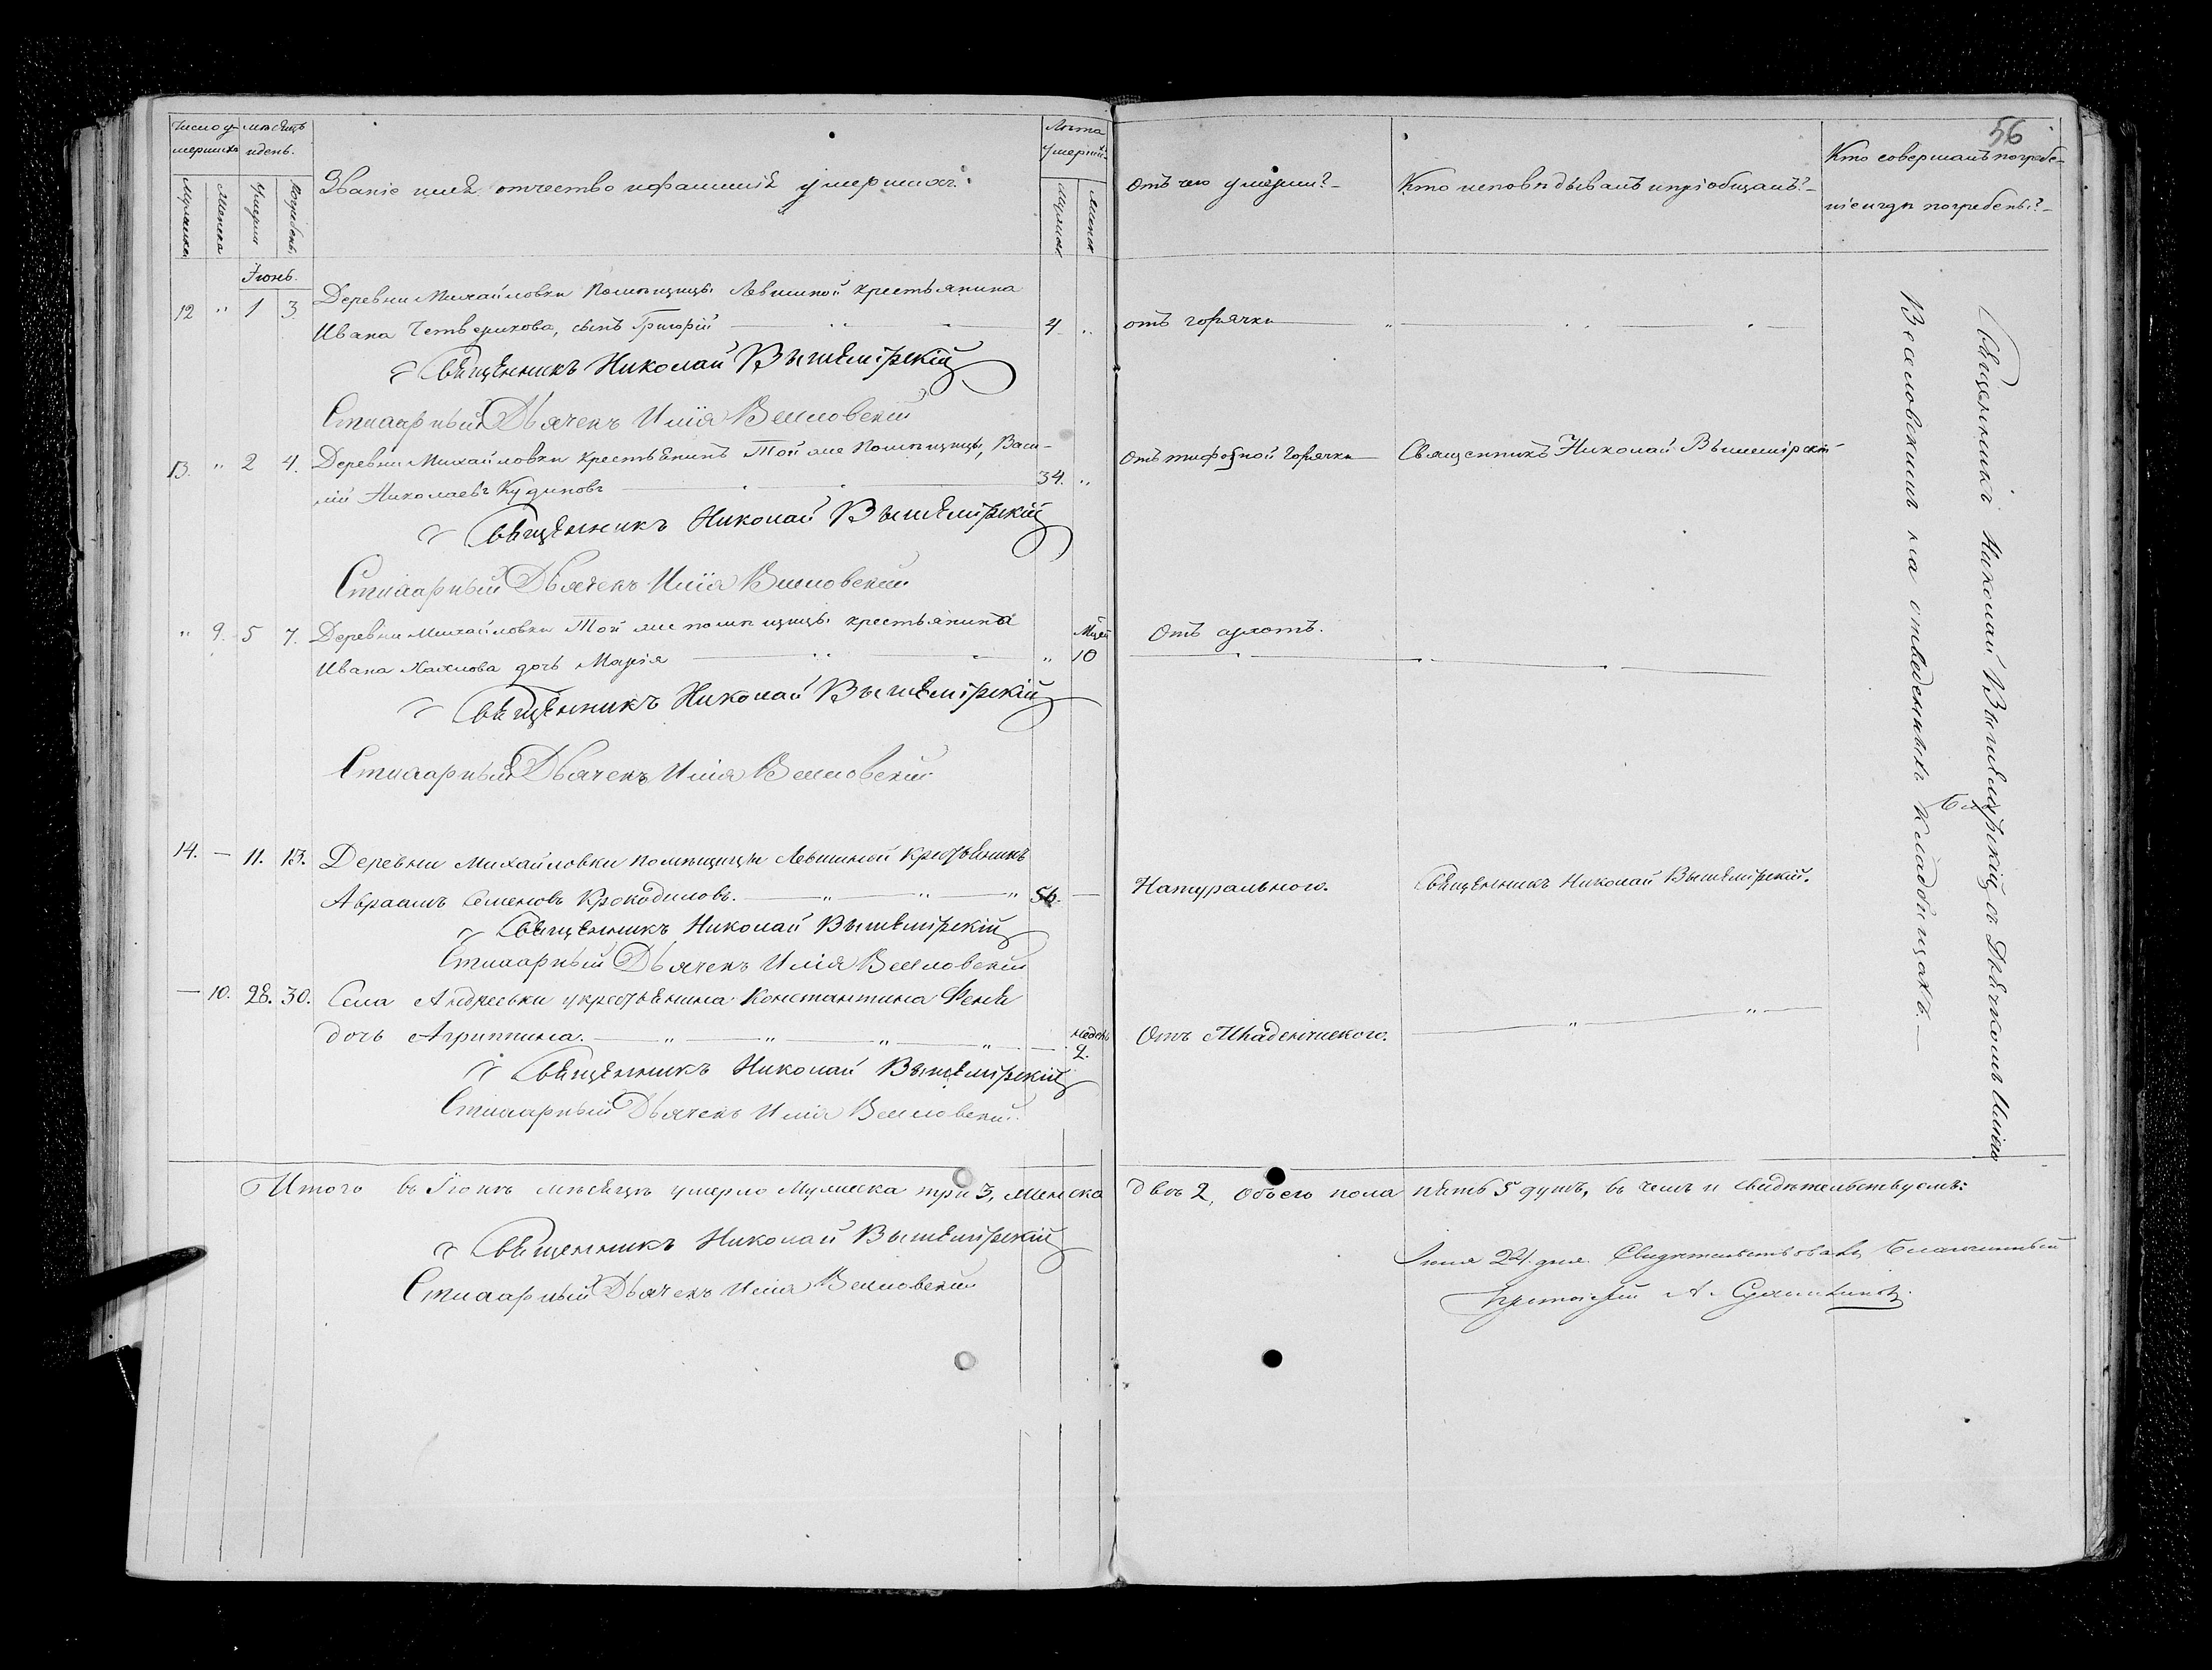 56
Число у- мѣсяцъ
мершихъ и день.
Лѣта
умершихъ
Званіе имя отчество и фамилія умершихъ.
Мужеска
Женска
Умерли
Погребены
Мужска
Женска
Отъ чего умерли?
Кто исповѣдывалъ и пріобщалъ?
Кто совершалъ погребе-
ніе и гдѣ погребены?
Іюнь.
12 " 1 3 Деревни Михайловки Помѣщицы Левшиной крестьянина
Ивана Четверикова, сынъ Григорій 4 " отъ горячки
Священникъ Николай Вышемірскій
Стихарный Дьячекъ Илія Веселовскій
13. " 2 4. Деревни Михайловки крестьянинъ Той же Помѣщицы, Васи-
лій Николаевъ Кудиновъ 34. " Отъ тифозной Горячки Священникъ Николай Вышемірскій
Священникъ Николай Вышемірскій
Стихарный Дьячекъ Илія Веселовскій
" 9. 5 7. Деревни Михайловки Той же помѣщицы крестьянина
Ивана дочь Марія " Мцей 10 Отъ
Священникъ Николай Вышемірскій
Стихарный Дьячекъ Илія Веселовскій
14. — 11. 13. Деревни Михайловки помѣщицы Левшиной крестьянинъ
Авраамъ Семеновъ Крокодиловъ. 56. — Натурального. Священникъ Николай Вышемірскій.
Священникъ Николай Вышемірскій
Стихарный Дьячекъ Илія Веселовскій
— 10. 28. 30. Села Андреевки у крестьянина Константина
дочь Агриппина. — недѣль 2. Отъ Младенческого.
Священникъ Николай Вышемірскій
Стихарный Дьячекъ Илія Веселовскій
Священникъ Николай Вышемірскій съ Дьячкомъ Иліею
Веселовскимъ на отведенныхъ кладбищахъ.
Итого въ Іюнѣ мѣсяцѣ умерло Мужеска три 3, женска двѣ 2, Обоего пола пять 5 душъ, въ чемъ и свидѣтельствуемъ:
Священникъ Николай Вышемірскій
Стихарный Дьячекъ Илія Веселовскій
24. дня. Свидѣтельствовалъ Благочинный
Протоіерей А.